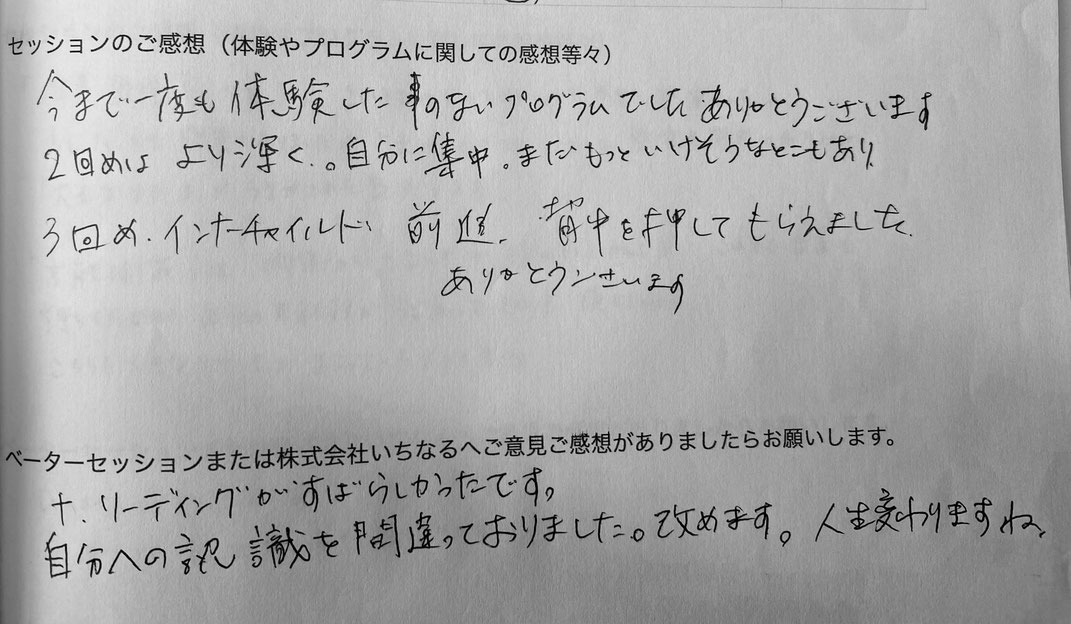 セッションのご感想（体験やプログラムに関しての感想等々）
今まで一度も体験した事のないプログラムでした ありがとうございます
2回めは より深く。自分に集中。まだもっといけそうなとこもあり
3回め.インナーチャイルド 前進. 背中を押してもらえました.
ありがとうございます
ベーターセッションまたは株式会社いちなるへご意見ご感想がありましたらお願いします。
十.リーディングがすばらしかったです。
自分への認識を間違っておりました。改めます。人生変わりますね。